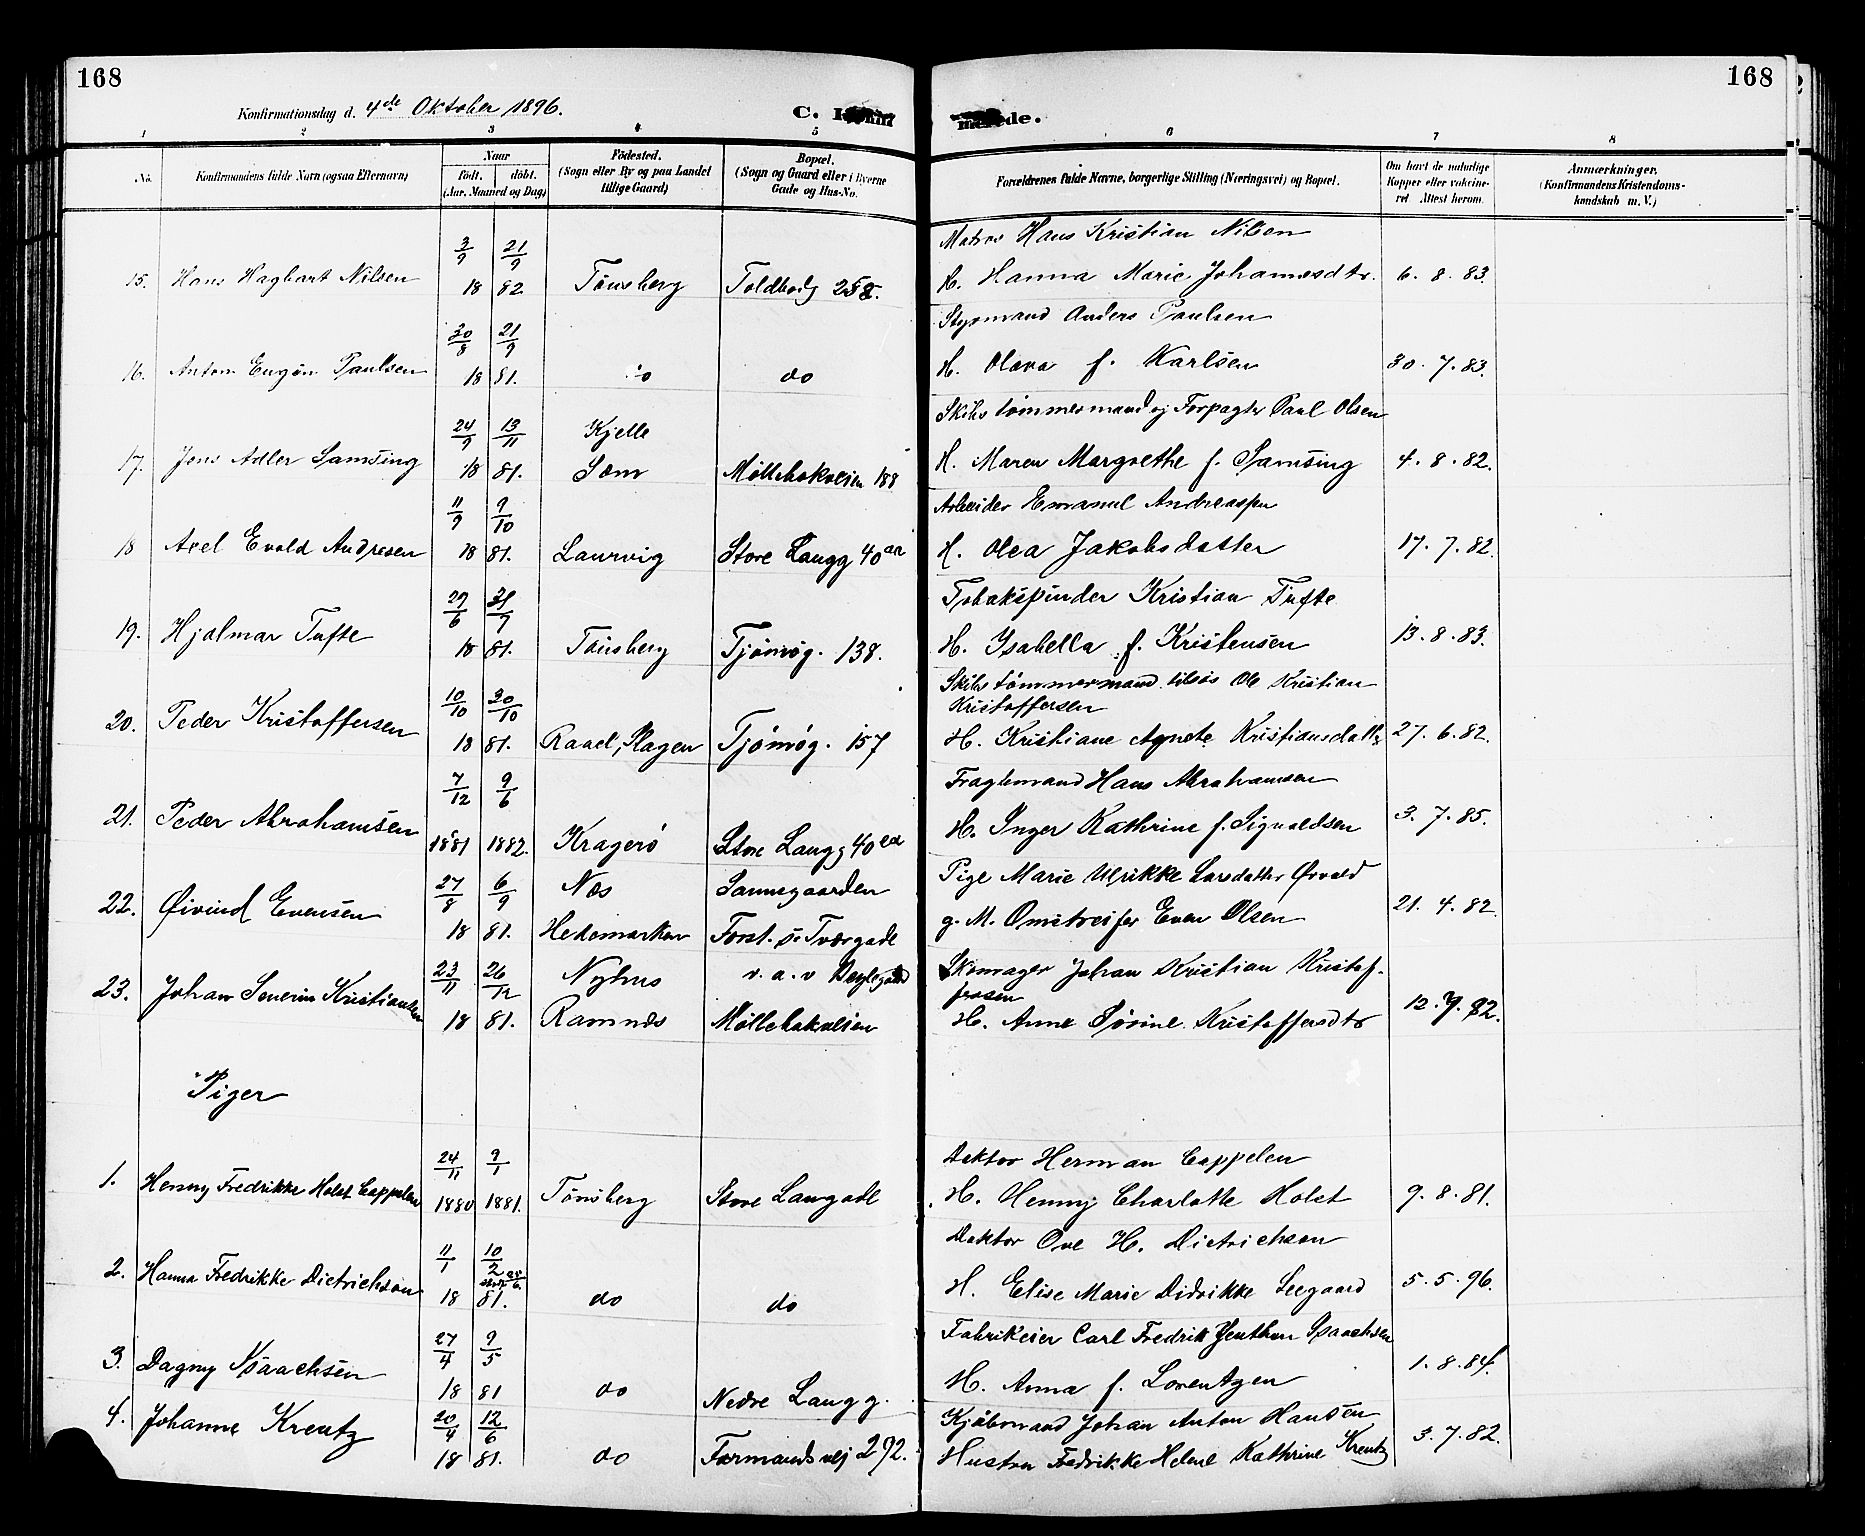 168
168
Konfirmationsdag d. 4de Oktober 1896.
C.
de.
1 2 3 4 5 6 7 8
No.
Konfirmandens fulde Navn (ogsaa Efternavn)
Naar
født. døbt.
(Aar, Maaned og Dag)
Fødested.
(Sogn eller By og paa Landet
tillige Gaard)
Bopæl.
(Sogn og Gaard eller i Byerne
Gade og Hus-No.
Forældrenes fulde Navne, borgerlige Stilling (Næringsvei) og Bopæl.
Om havt de naturlige
Kopper eller vaccine-
ret. Attest herom.
Anmærkninger.
(Konfirmandens Kristendoms-
kundskab m. V.)
3/9 21/9 Matros Hans Kristian Nilsen
15. Hans Hagbart Nilsen 18 82. Tønsberg Toldbodg 258. H. Hanna Marie Johannesdtr. 6.8.83.
30/8 21/9 Styrmand Anders Paulsen
16. Anton Eugen Paulsen 18 81. do do H. Olava f. Karlsen 30.7.83.
24/9 13/11 Kjelle Skibstømmermand og Forpagter Paul Olsen
17. Jens Adler Samsing 18 81. Sem Møllebakveien 188 H. Maren Margrethe f. Samsing 4.8.82.
11/9 9/10 Arbeider Emanuel Andreassen
18 Axel Evald Andresen 18 81. Laurvig Store Langg 40 H. Olea Jakobsdatter 17.7.82.
29/6 31/7 Tobakspinder Kristian Tufte
19. Hjalmar Tufte 18 81. Tønsberg Tjømøg. 138. H. Ysabella f. Kristensen 13.8.83.
10/10 30/10 Skibstømmermand tilsøs Ole Kristian
Kristoffersen
20. Peder Kristoffersen 18 81. Raael, Slagen Tjømøg. 157 H. Kristiane Agnete Kristiansdatter 27.6.82.
7/12 9/6 Fragtemand Hans Abrahamsen
21. Peder Abrahamsen 1881 1882. Kragerø Store Langg 40 H. Inger Kathrine f. Sigvaldsen 3.7.85.
27/8 6/9 Næs Sannsgaarden Pige Marie Ulrikke Larsdatter Ørvald
22. Øivind Evensen 18 81. Hedemarken Forst. s. Tværgade g. M. Omstreifer Even Olsen 21.4.82.
23/11 26/12 Nyhus v.a.v Skomager Johan Kristian Kristof-
fersen
23. Johan Severin Kristiansen 18 81. Ramnes Møllebakveien H. Anne Sørine Kristoffersdtr 12.7.82.
Piger
24/11 9/1 Doktor Herman Cappelen
1. Henny Fredrikke Holst Cappelen 1880 1881. Tønsberg Store Langade H. Henny Charlotte Holst 9.8.81.
11/1 10/2 Doktor Ove H. Dietrichson
2. Hanna Fredrikke Dietrichson 18 81. do do H. Elise Marie Didrikke Seegaard 5.5.96.
27/4 9/5 Fabrikeier Carl Fredrik Isaachsen
3. Dagny Isaachsen 18 81 do Nedre Langg. H. Anna f. Lorentzen 1.8.84.
20/4 12/6 Kjøbmand Johan Anton Hansen
4. Johanne Kreutz 18 81. do Formandsvej 292. Hustru Fredrikke Helene Kathrine Kreutz 3.7.82.